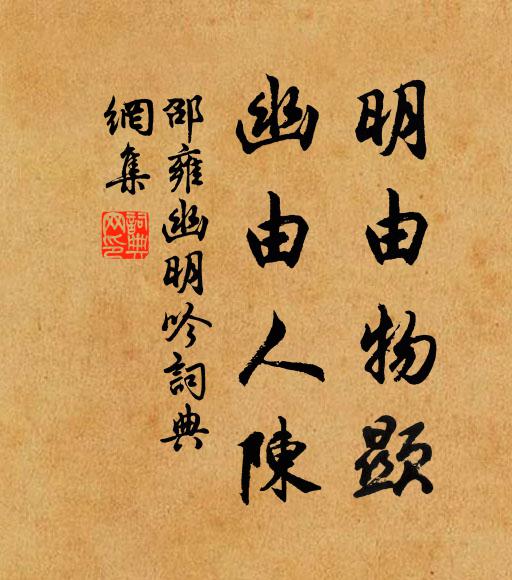 明由物顯
幽由人陳
邵雍幽明吟詞典
網集
詞典
网印